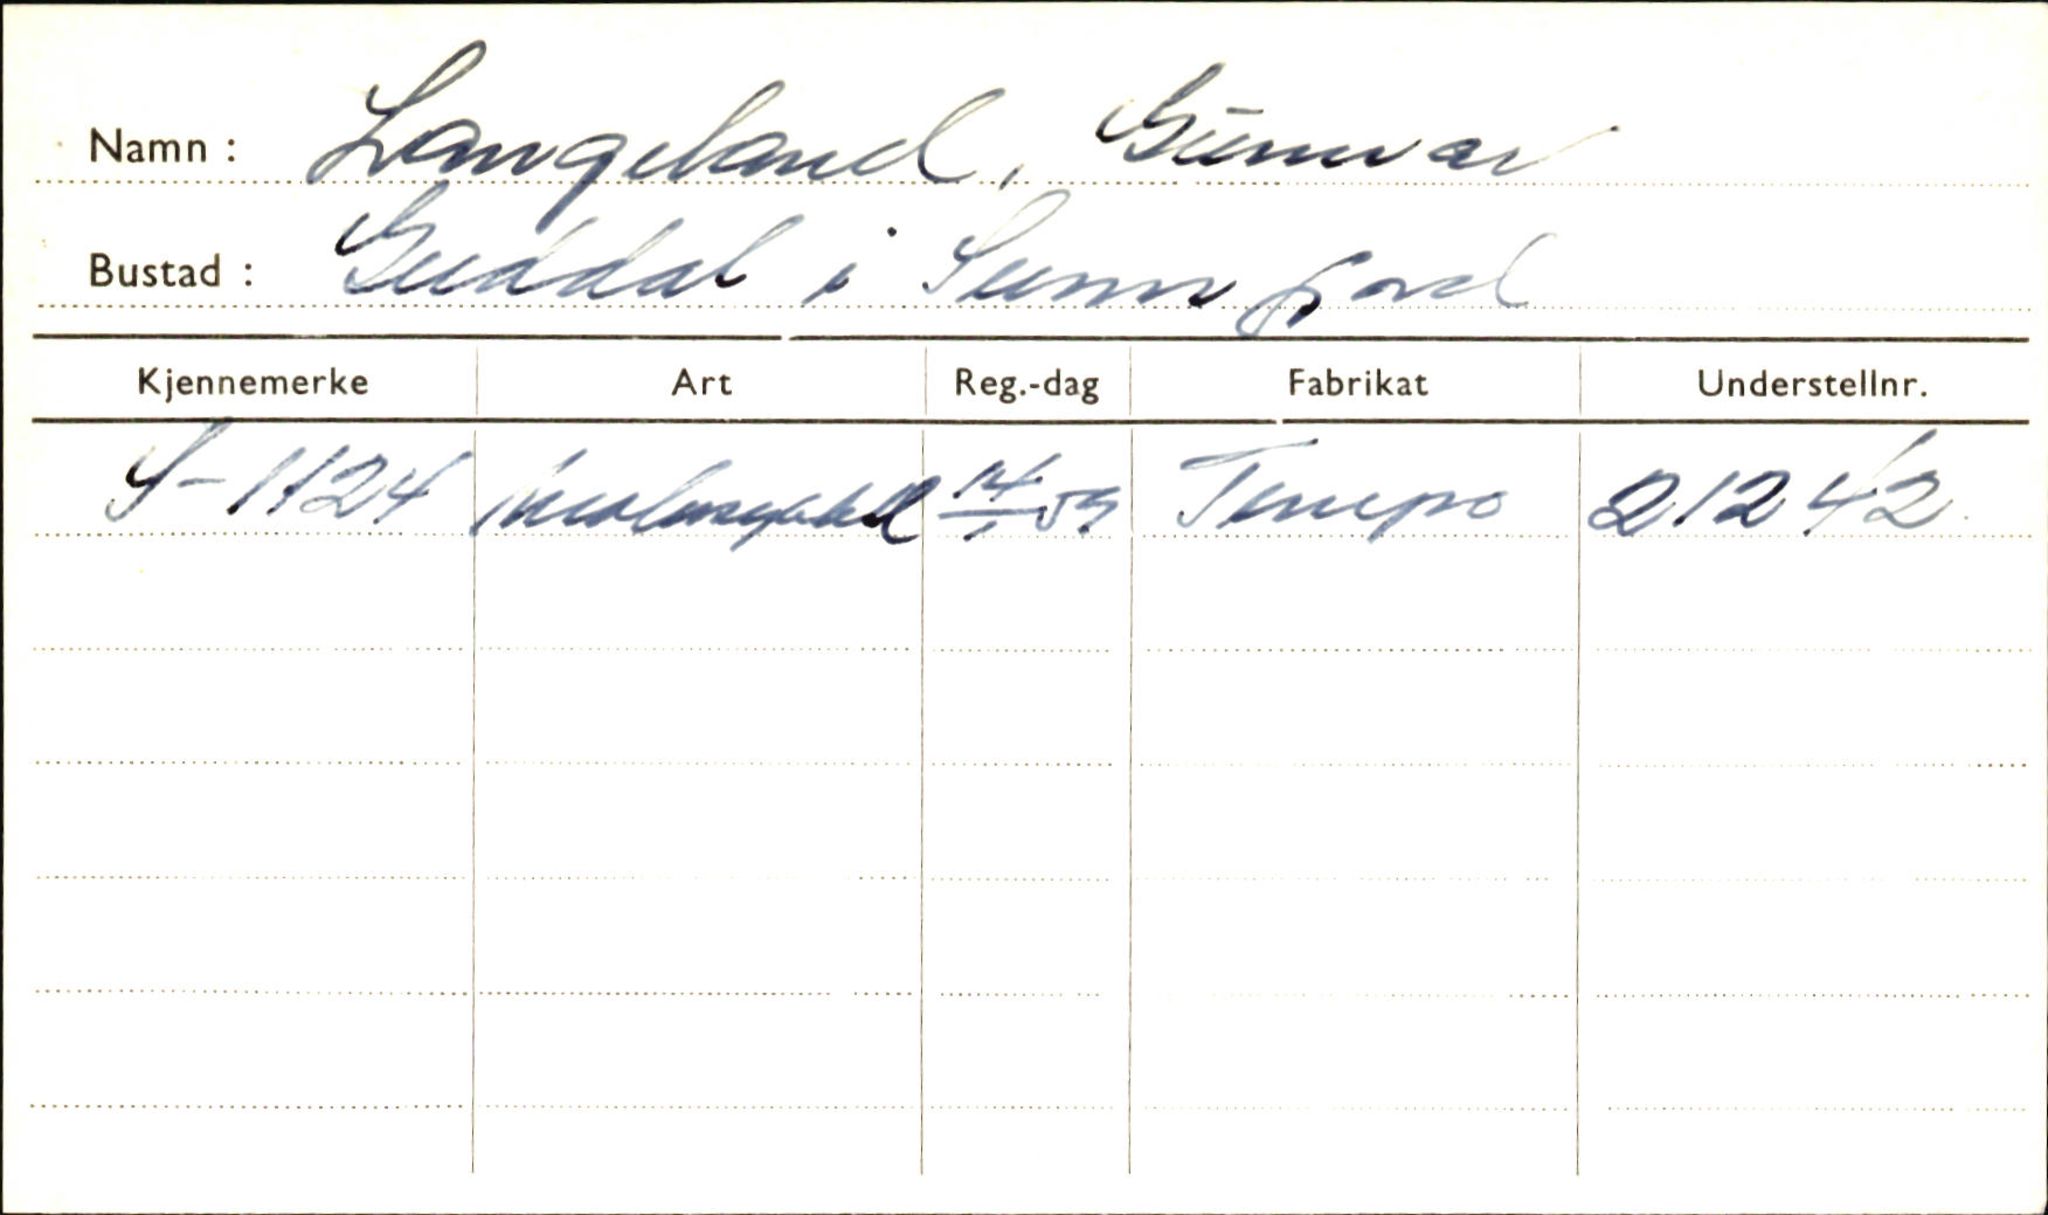 Namn : Langeland, Gunnvar
Bustad : Guddal i Sunnfjord
Kjennemerke Art Reg.-dag Fabrikat Understellnr.
S-1124 Motorsykkel 14/1 59 Tempo 21242